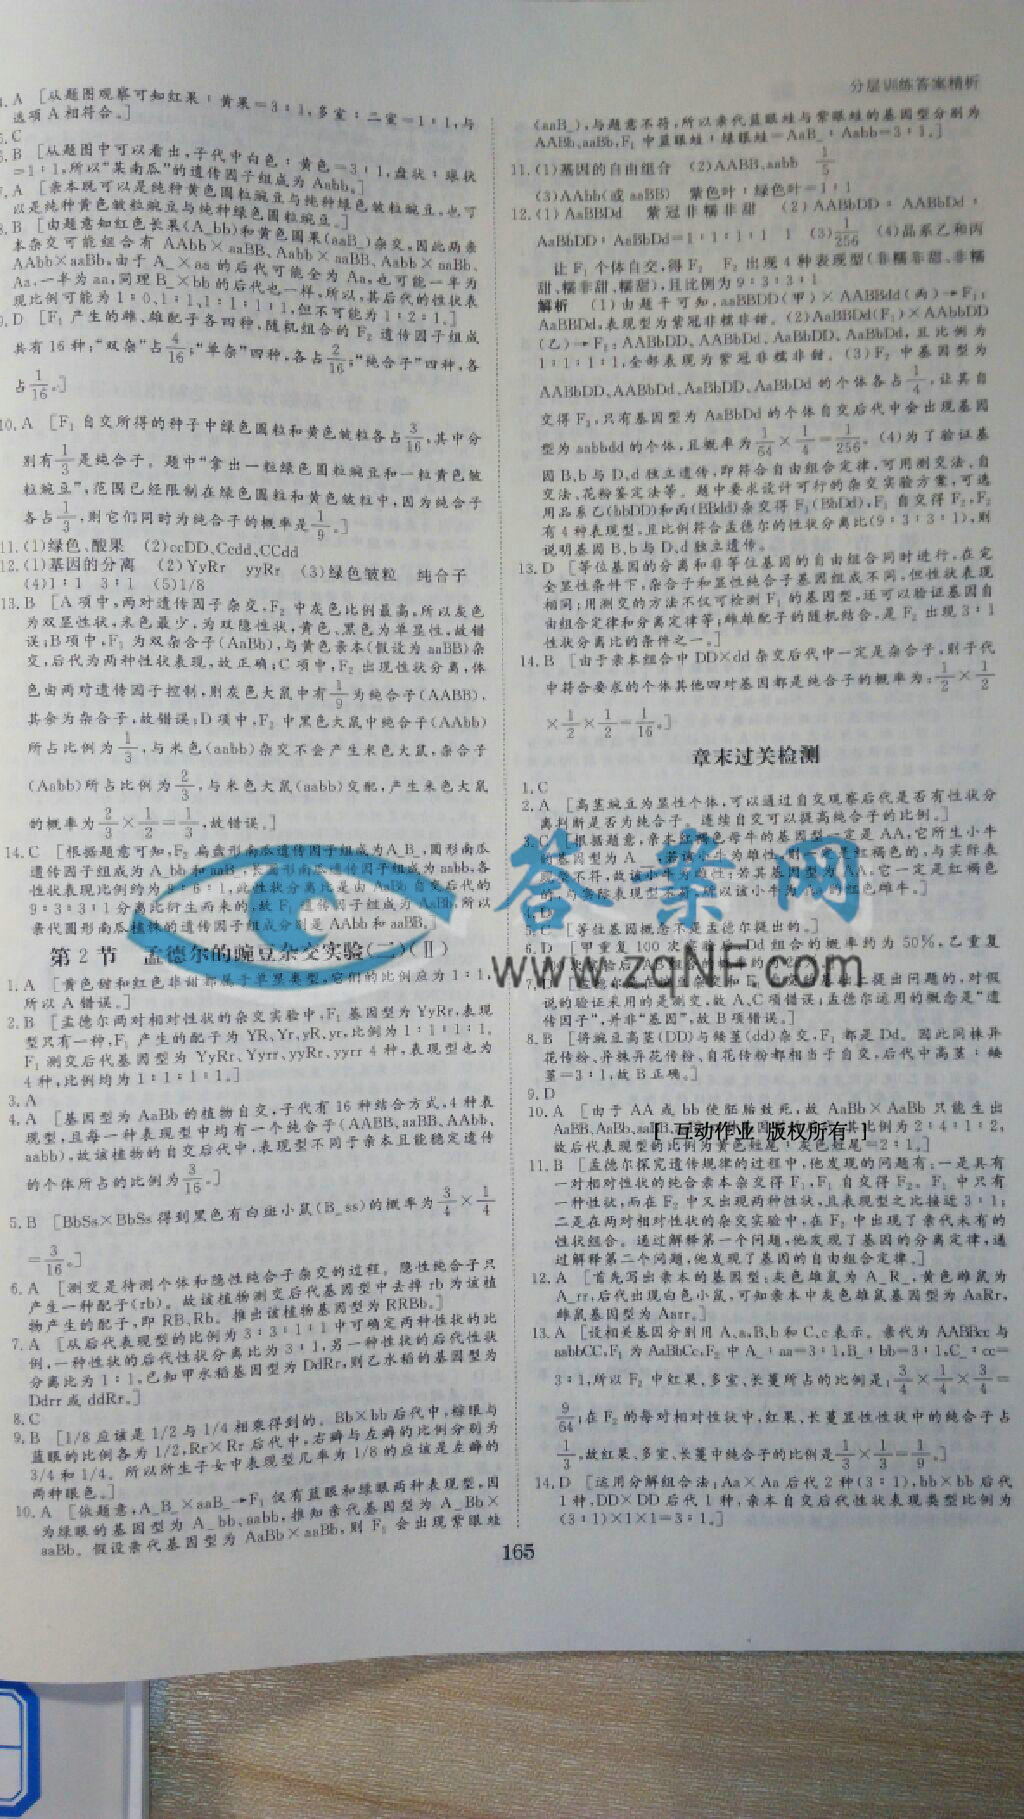 分层训练答案精析
A [从题图观察可知红果∶黄果=3∶1,多室∶二室=1∶1,与
选项A相符合。]
C
B [从题图中可以看出,子代中白色∶黄色=3∶1,盘状∶球状
=1∶1,所以“某南瓜”的遗传因子组成为Aabb。]
A [亲本既可以是纯种黄色圆粒豌豆与纯种绿色皱粒豌豆,也可
以是纯种黄色皱粒豌豆与纯种绿色圆粒豌豆。]
8.B [由题意知红色长果(A_bb)和黄色圆果(aaB_)杂交,因此两亲
本杂交可能组合有AAbb×aaBB、Aabb×aaBB、Aabb×aaBb、
AAbb×aaBb。由于A_×aa的后代可能全为Aa,也可能一半为
Aa,一半为aa,同理B_×bb的后代也一样,所以,其后代的性状表
现比例可能为1∶0,1∶1,1∶1∶1∶1,但不可能为1∶2∶1。]
9.D [F₁产生的雌、雄配子各四种,随机组合的F₂遗传因子组成
共有16种;“双杂”占4/16;“单杂”四种,各占2/16;“纯合子”四种,各
占1/16。]
10.A [F₁自交所得的种子中绿色圆粒和黄色皱粒各占3/16,其中分
别有1/3是纯合子。题中“拿出一粒绿色圆粒豌豆和一粒黄色皱
粒豌豆”,范围已经限制在绿色圆粒和黄色皱粒中,因为纯合子
各占1/3,则它们同时为纯合子的概率是1/9。]
11.(1)绿色、酸果 (2)ccDD、Ccdd、CCdd
12.(1)基因的分离 (2)YyRr yyRr (3)绿色皱粒 纯合子
(4)1∶1 3∶1 (5)1/8
13.B [A项中,两对遗传因子杂交,F₂中灰色比例最高,所以灰色
为双显性状,米色最少,为双隐性状,黄色、黑色为单显性,故错
误;B项中,F₁为双杂合子(AaBb),与黄色亲本(假设为aaBB)杂
交,后代为两种性状表现,故正确;C项中,F₂出现性状分离,体
色由两对遗传因子控制,则灰色大鼠中有1/9为纯合子(AABB),
其余为杂合子,故错误;D项中,F₂中黑色大鼠中纯合子(AAbb)
所占比例为1/3,与米色(aabb)杂交不会产生米色大鼠,杂合子
(Aabb)所占比例为2/3,与米色大鼠(aabb)交配,产生米色大鼠
的概率为2/3×1/2=1/3,故错误。]
14.C [根据题意可知,F₂扁盘形南瓜遗传因子组成为A_B_,圆形南瓜
遗传因子组成为A_bb和aaB_,长圆形南瓜遗传因子组成为aabb,各
性状表现比例约为9∶6∶1,此性状分离比是由AaBb自交后代的
9∶3∶3∶1分离比衍生而来的,故F₁遗传因子组成为AaBb,所以
亲代圆形南瓜植株的遗传因子组成分别是AAbb和aaBB。]
第2节 孟德尔的豌豆杂交实验(二)(Ⅱ)
1.A [黄色甜和红色非甜都属于单显类型,它们的比例应为1∶1,
所以A错误。]
2.B [孟德尔两对相对性状的杂交实验中,F₁基因型为YyRr,表现
型只有一种,F₁产生的配子为YR、Yr、yR、yr,比例为1∶1∶1∶1,
F₁测交后代基因型为YyRr、Yyrr、yyRr、yyrr 4种,表现型也为
4种,比例均为1∶1∶1∶1。]
3.A
4.A [基因型为AaBb的植物自交,子代有16种结合方式,4种表
现型,且每一种表现型中均有一个纯合子(AABB、aaBB、AAbb、
aabb),故该植物的自交后代中,表现型不同于亲本且能稳定遗传
的个体所占的比例为3/16。]
5.B [BbSs×BbSs得到黑色有白斑小鼠(B_ss)的概率为3/4×1/4
=3/16。]
6.A [测交是待测个体和隐性纯合子杂交的过程。隐性纯合子只
产生一种配子(rb)。故该植物测交后代基因型中去掉rb为该植
物产生的配子,即RB、Rb。推出该植物基因型为RRBb。]
7.A [从后代表现型的比例为3∶3∶1∶1中可确定两种性状的比
例,一种性状的后代性状分离比为3∶1,另一种性状的后代性状
分离比为1∶1,已知甲水稻基因型为DdRr,则乙水稻的基因型为
Ddrr或ddRr。]
8.C
9.B [1/8应该是1/2与1/4相乘得到的。Bb×bb后代中,棕眼与
蓝眼的比例各为1/2,Rr×Rr后代中,右癖与左癖的比例分别为
3/4和1/4。所以所生子女中表现型几率为1/8的应该是左癖的
两种眼色。]
10.A [依题意,A_B_×aaB_→F₁仅有蓝眼和绿眼两种表现型,因
为绿眼的基因型为A_bb、aabb,推知亲代基因型为A_Bb×
aaBb。假设亲代基因型为AaBb×aaBb,则F₁会出现紫眼蛙
(aaB_),与题意不符,所以亲代蓝眼蛙与紫眼蛙的基因型分别为
AABb、aaBb,F₁中蓝眼蛙∶绿眼蛙=AaB_∶Aabb=3∶1。]
11.(1)基因的自由组合 (2)AABB、aabb 1/5
(3)AAbb(或aaBB) 紫色叶∶绿色叶=1∶1
12.(1)AaBBDd 紫冠非糯非甜 (2)AABBDD∶AABbDd∶
AaBbDD∶AaBbDd=1∶1∶1∶1 1 (3)1/256 (4)品系乙和丙
让F₁个体自交,得F₂ F₂出现4种表现型(非糯非甜、非糯
甜、糯非甜、糯甜),且比例为9∶3∶3∶1
解析 (1)由题干可知,aaBBDD(甲)×AABBdd(丙)→F₁:
AaBBDd,表现型为紫冠非糯非甜。(2)AaBBDd(F₁)×AAbbDD
(乙)→F₂:AABbDD、AABbDd、AaBbDD、AaBbDd,且比例为
1∶1∶1∶1,全部表现为紫冠非糯非甜。(3)F₂中基因型为
AABbDD、AABbDd、AaBbDD、AaBbDd的个体各占1/4,让其自
交得F₃,只有基因型为AaBbDd的个体自交后代中会出现基因
型为aabbdd的个体,且概率为1/64×1/4=1/256。(4)为了验证基
因B、b与D、d独立遗传,即符合自由组合定律,可用测交法、自
交法、花粉鉴定法等。题中要求设计可行的杂交实验方案,可选
用品系乙(bbDD)和丙(BBdd)杂交得F₁(BbDd),F₁自交得F₂,F₂
有4种表现型,且比例符合孟德尔的性状分离比(9∶3∶3∶1),则
说明基因B、b与D、d独立遗传。
13.D [等位基因的分离和非等位基因的自由组合同时进行,在完
全显性条件下,杂合子和显性纯合子基因组成不同,但性状表现
相同;用测交的方法不仅可检测F₁的基因型,还可以验证基因自
由组合定律和分离定律等;雌雄配子的随机结合,是F₂出现3∶1
性状分离比的条件之一。]
14.B [由于亲本组合中DD×dd杂交后代中一定是杂合子,则子代
中符合要求的个体其他四对基因都是纯合子的概率为:1/2×1/2
×1/2×1/2=1/16。]
章末过关检测
1.C
2.A [高茎豌豆为显性个体,可以通过自交观察后代是否有性状分
离判断是否为纯合子,连续自交可以提高纯合子的比例。]
3.C [根据题意,亲本红褐色母牛的基因型一定是AA,它所生小牛
的基因型为A_,若该小牛为雄性,则一定是红褐色的,与实际表
现型不符,故该小牛为雌性;若其基因型为AA,它一定是红褐色
的,与实际表现型不符,所以该小牛为Aa的红色雌牛。]
4.D
5.C [等位基因概念不是孟德尔提出的。]
6.D [甲重复100次实验后,Dd组合的概率约为50%,乙重复
7.D [孟德尔是在
说的验证采用的是测交,故A、C项错误;孟德尔运用的概念是“遗
传因子”,并非“基因”,故B项错误。]
8.B [将豌豆高茎(DD)与矮茎(dd)杂交,F₁都是Dd。因此同株异
花传粉、异株异花传粉、自花传粉都相当于自交,后代中高茎∶矮
茎=3∶1,故B正确。]
9.D
10.A [由于AA或bb使胚胎致死,故AaBb×AaBb只能生出
AaBB、AaBb、aaBB、aaBb 其比例为2∶4∶1∶2,
故后代表现型的比例为黄色短尾∶灰色短尾=2∶1。]
11.B [孟德尔探究遗传规律的过程中,他发现的问题有:一是具有
一对相对性状的纯合亲本杂交得F₁,F₁自交得F₂。F₁中只有
一种性状,而在F₂中又出现两种性状,且表现型之比接近3∶1;
二是在两对相对性状的杂交实验中,在F₂中出现了亲代未有的
性状组合。通过解释第一个问题,他发现了基因的分离定律,通
过解释第二个问题,他发现了基因的自由组合定律。]
12.A [首先写出亲本的基因型:灰色雄鼠为A_R_,黄色雌鼠为
A_rr,后代出现白色小鼠,可知亲本中灰色雄鼠基因型为AaRr,
雌鼠基因型为Aarr。]
13.A [设相关基因分别用A、a,B、b和C、c表示。亲代为AABBcc与
aabbCC,F₁为AaBbCc,F₂中A_∶aa=3∶1,B_∶bb=3∶1,C_∶cc=
3∶1,所以F₂中红果、多室、长蔓所占的比例是:3/4×3/4×3/4=
9/64;在F₂的每对相对性状中,红果、长蔓显性性状中的纯合子占
1/3,故红果、多室、长蔓中纯合子的比例是1/3×1/3=1/9。]
14.D [运用分解组合法:Aa×Aa后代2种(3∶1),bb×bb后代
1种,DD×DD后代1种,亲本自交后代性状表现类型比例为
(3∶1)×1×1=3∶1。]
165
答案网
www.zqNF.com
[ 互动作业 版权所有 ]